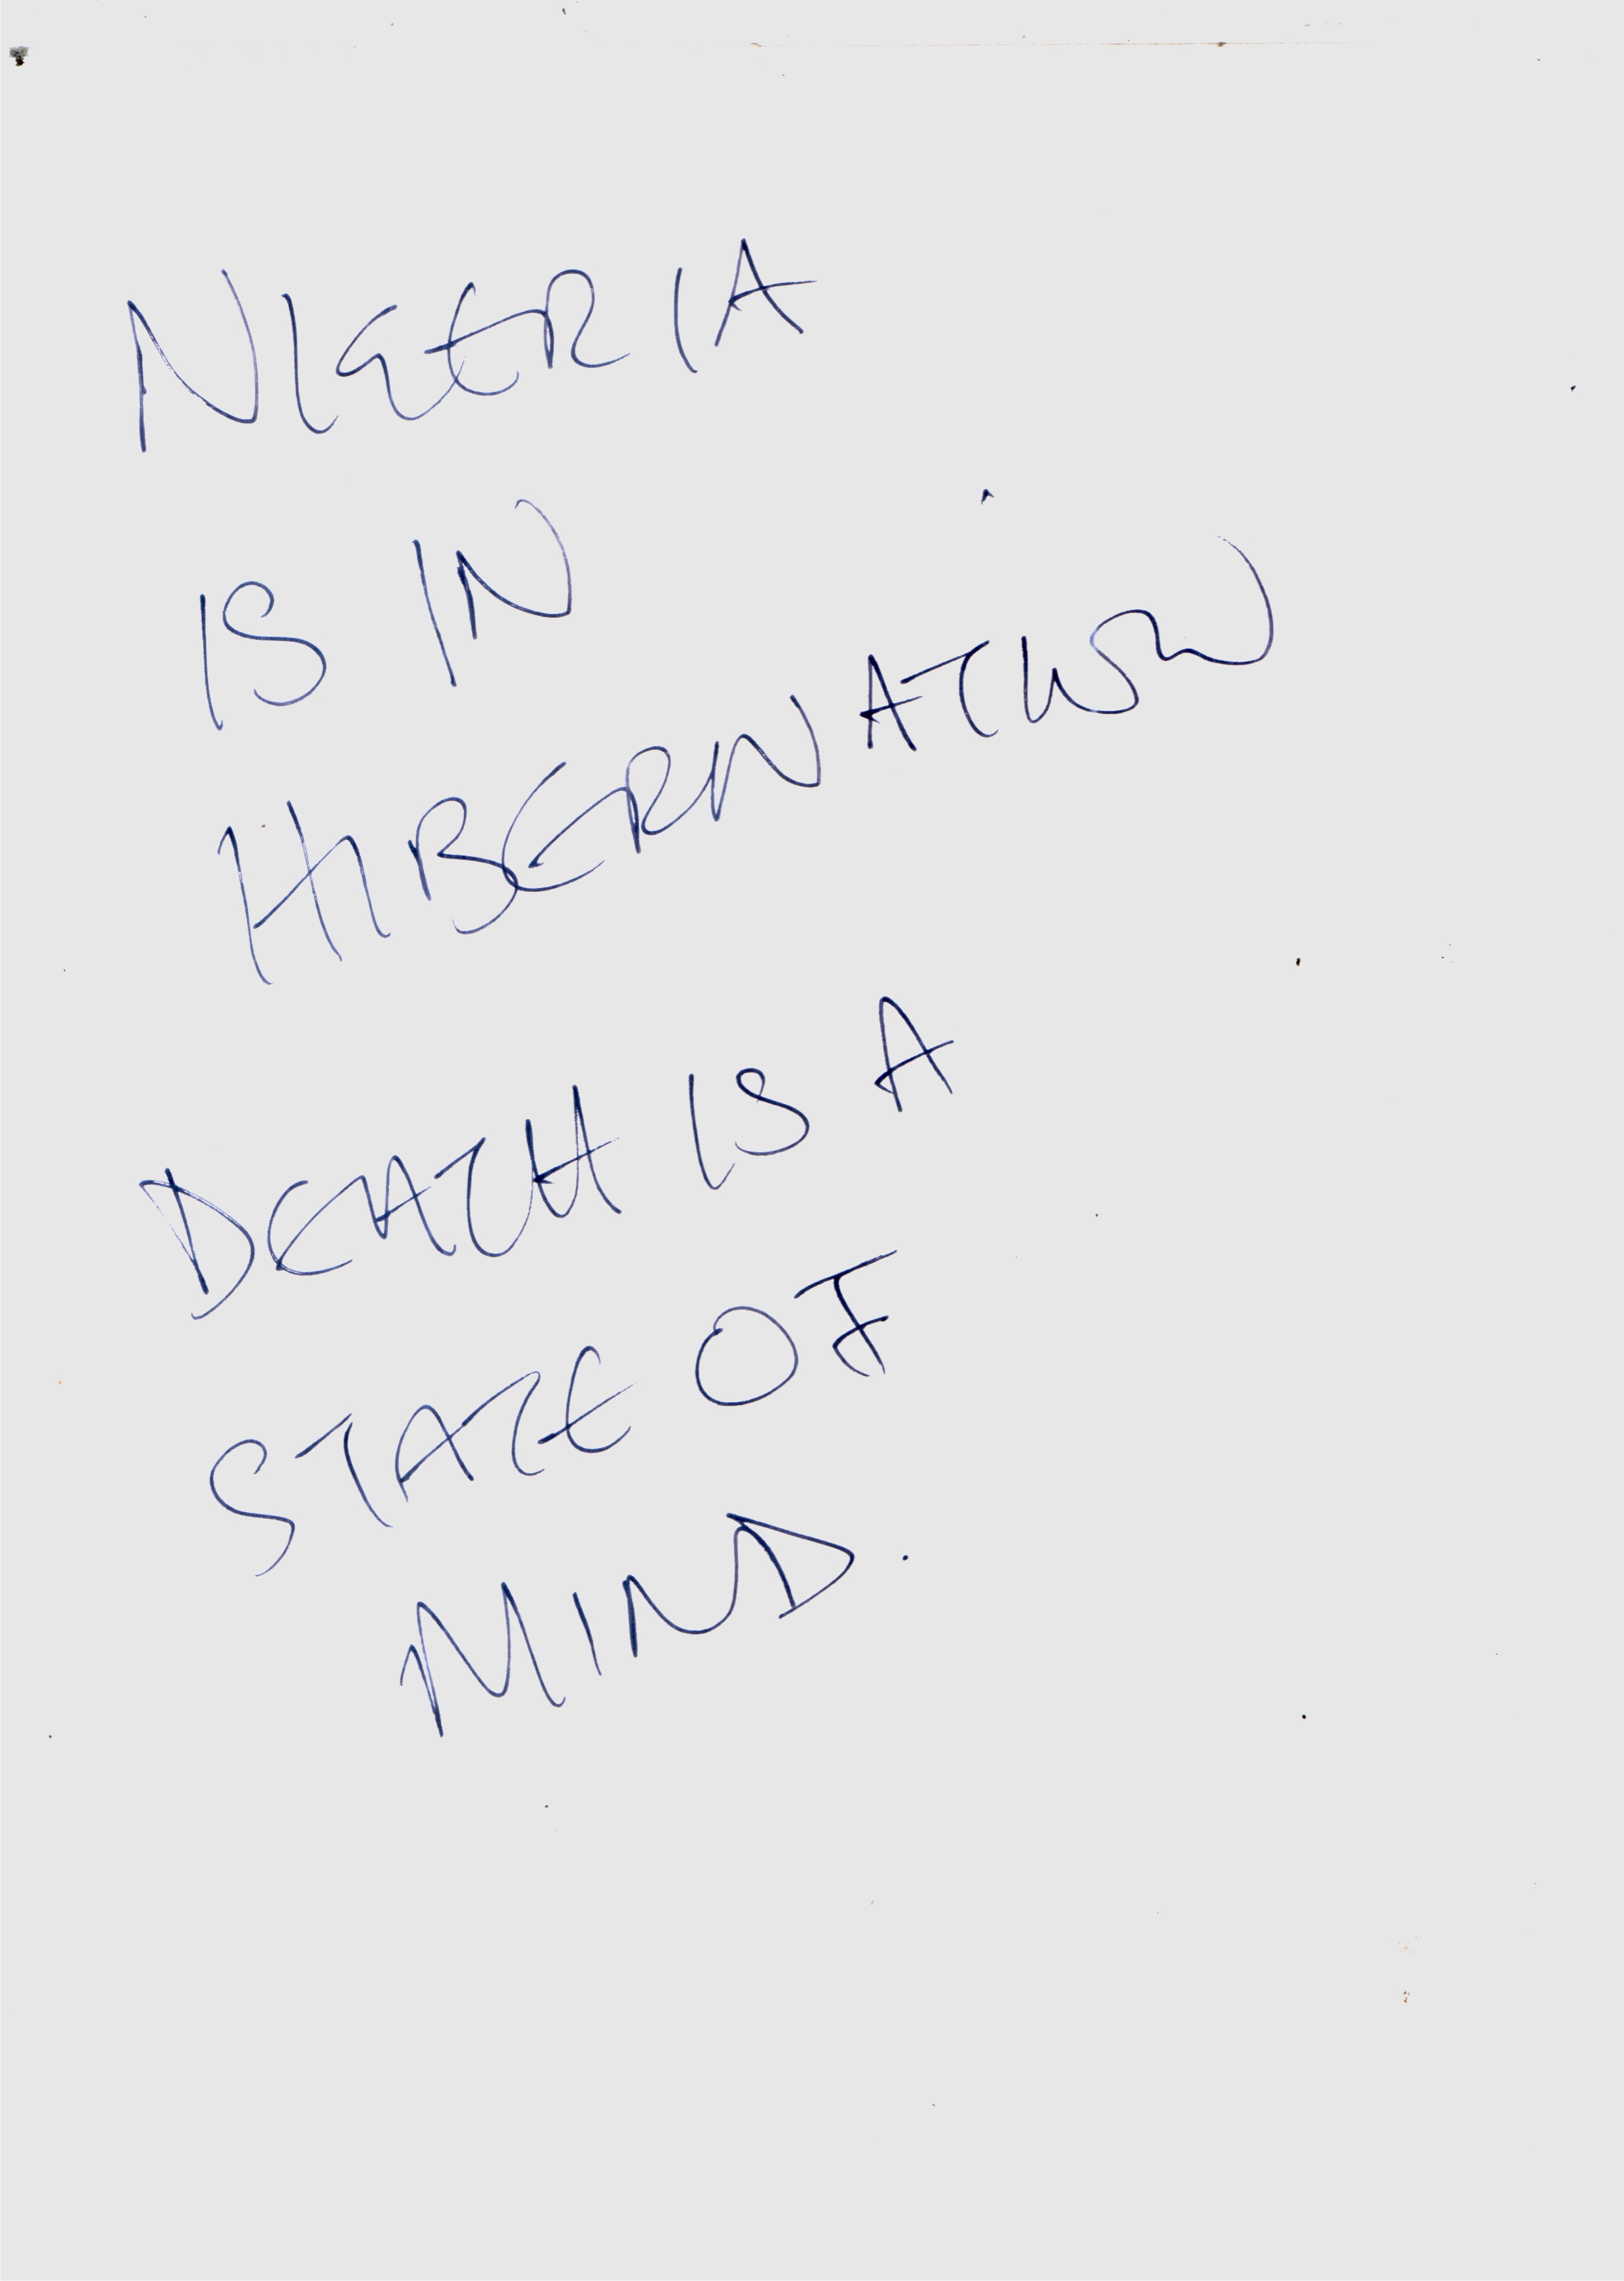 NIGERIA
IS IN
HIBERNATION
DEATH IS A
STATE OF
MIND.